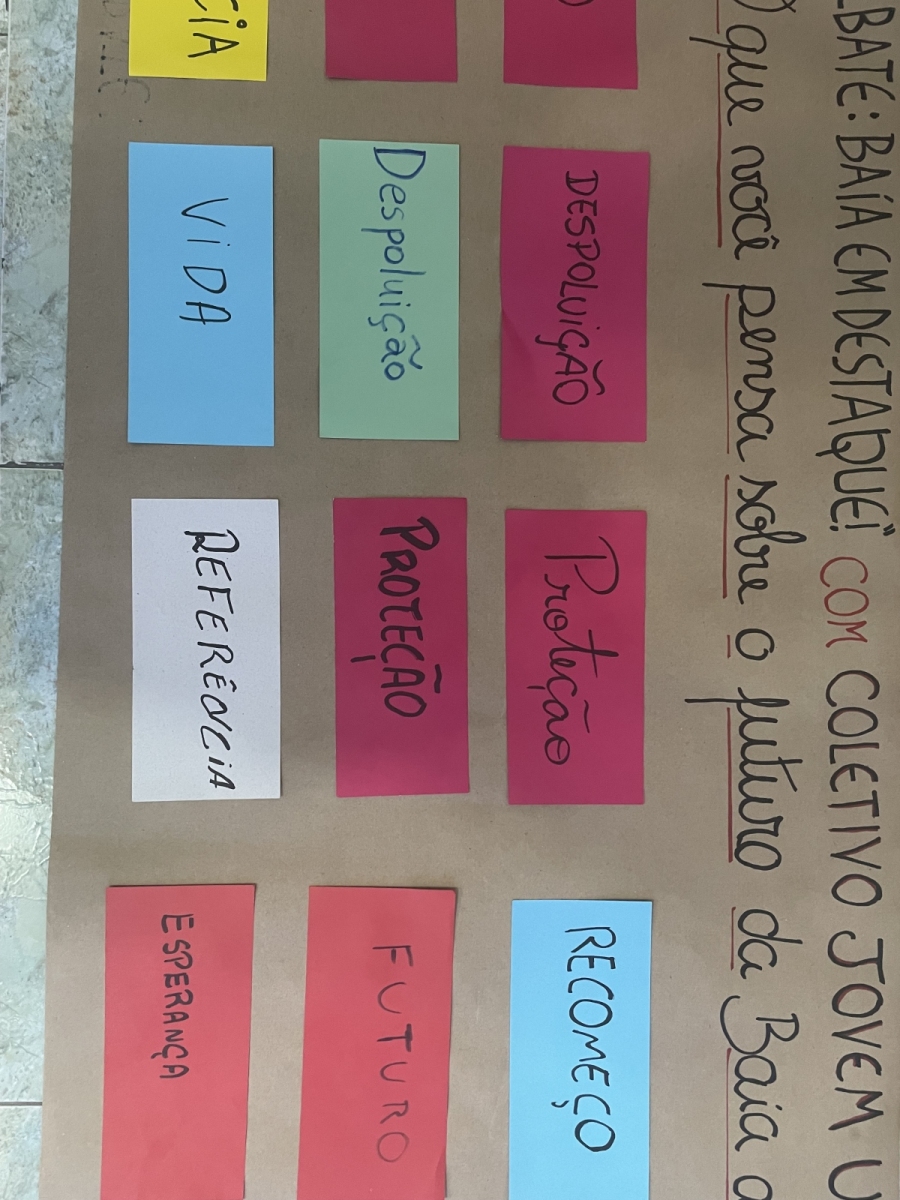 BATE: BAÍA EM DESTAQUE!" COM COLETIVO JOVEM
que você pensa sobre o futuro da Baia
DESPOLUIÇÃO
Proteção
RECOMEÇO
Despoluição
PROTEÇÃO
FUTURO
CIA
VIDA
REFERÊNCIA
ESPERANÇA